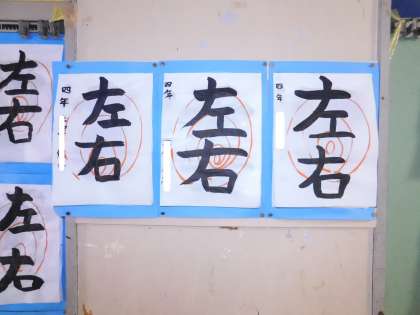 左右
左右
四年
左右
四年
左右
四年
左右